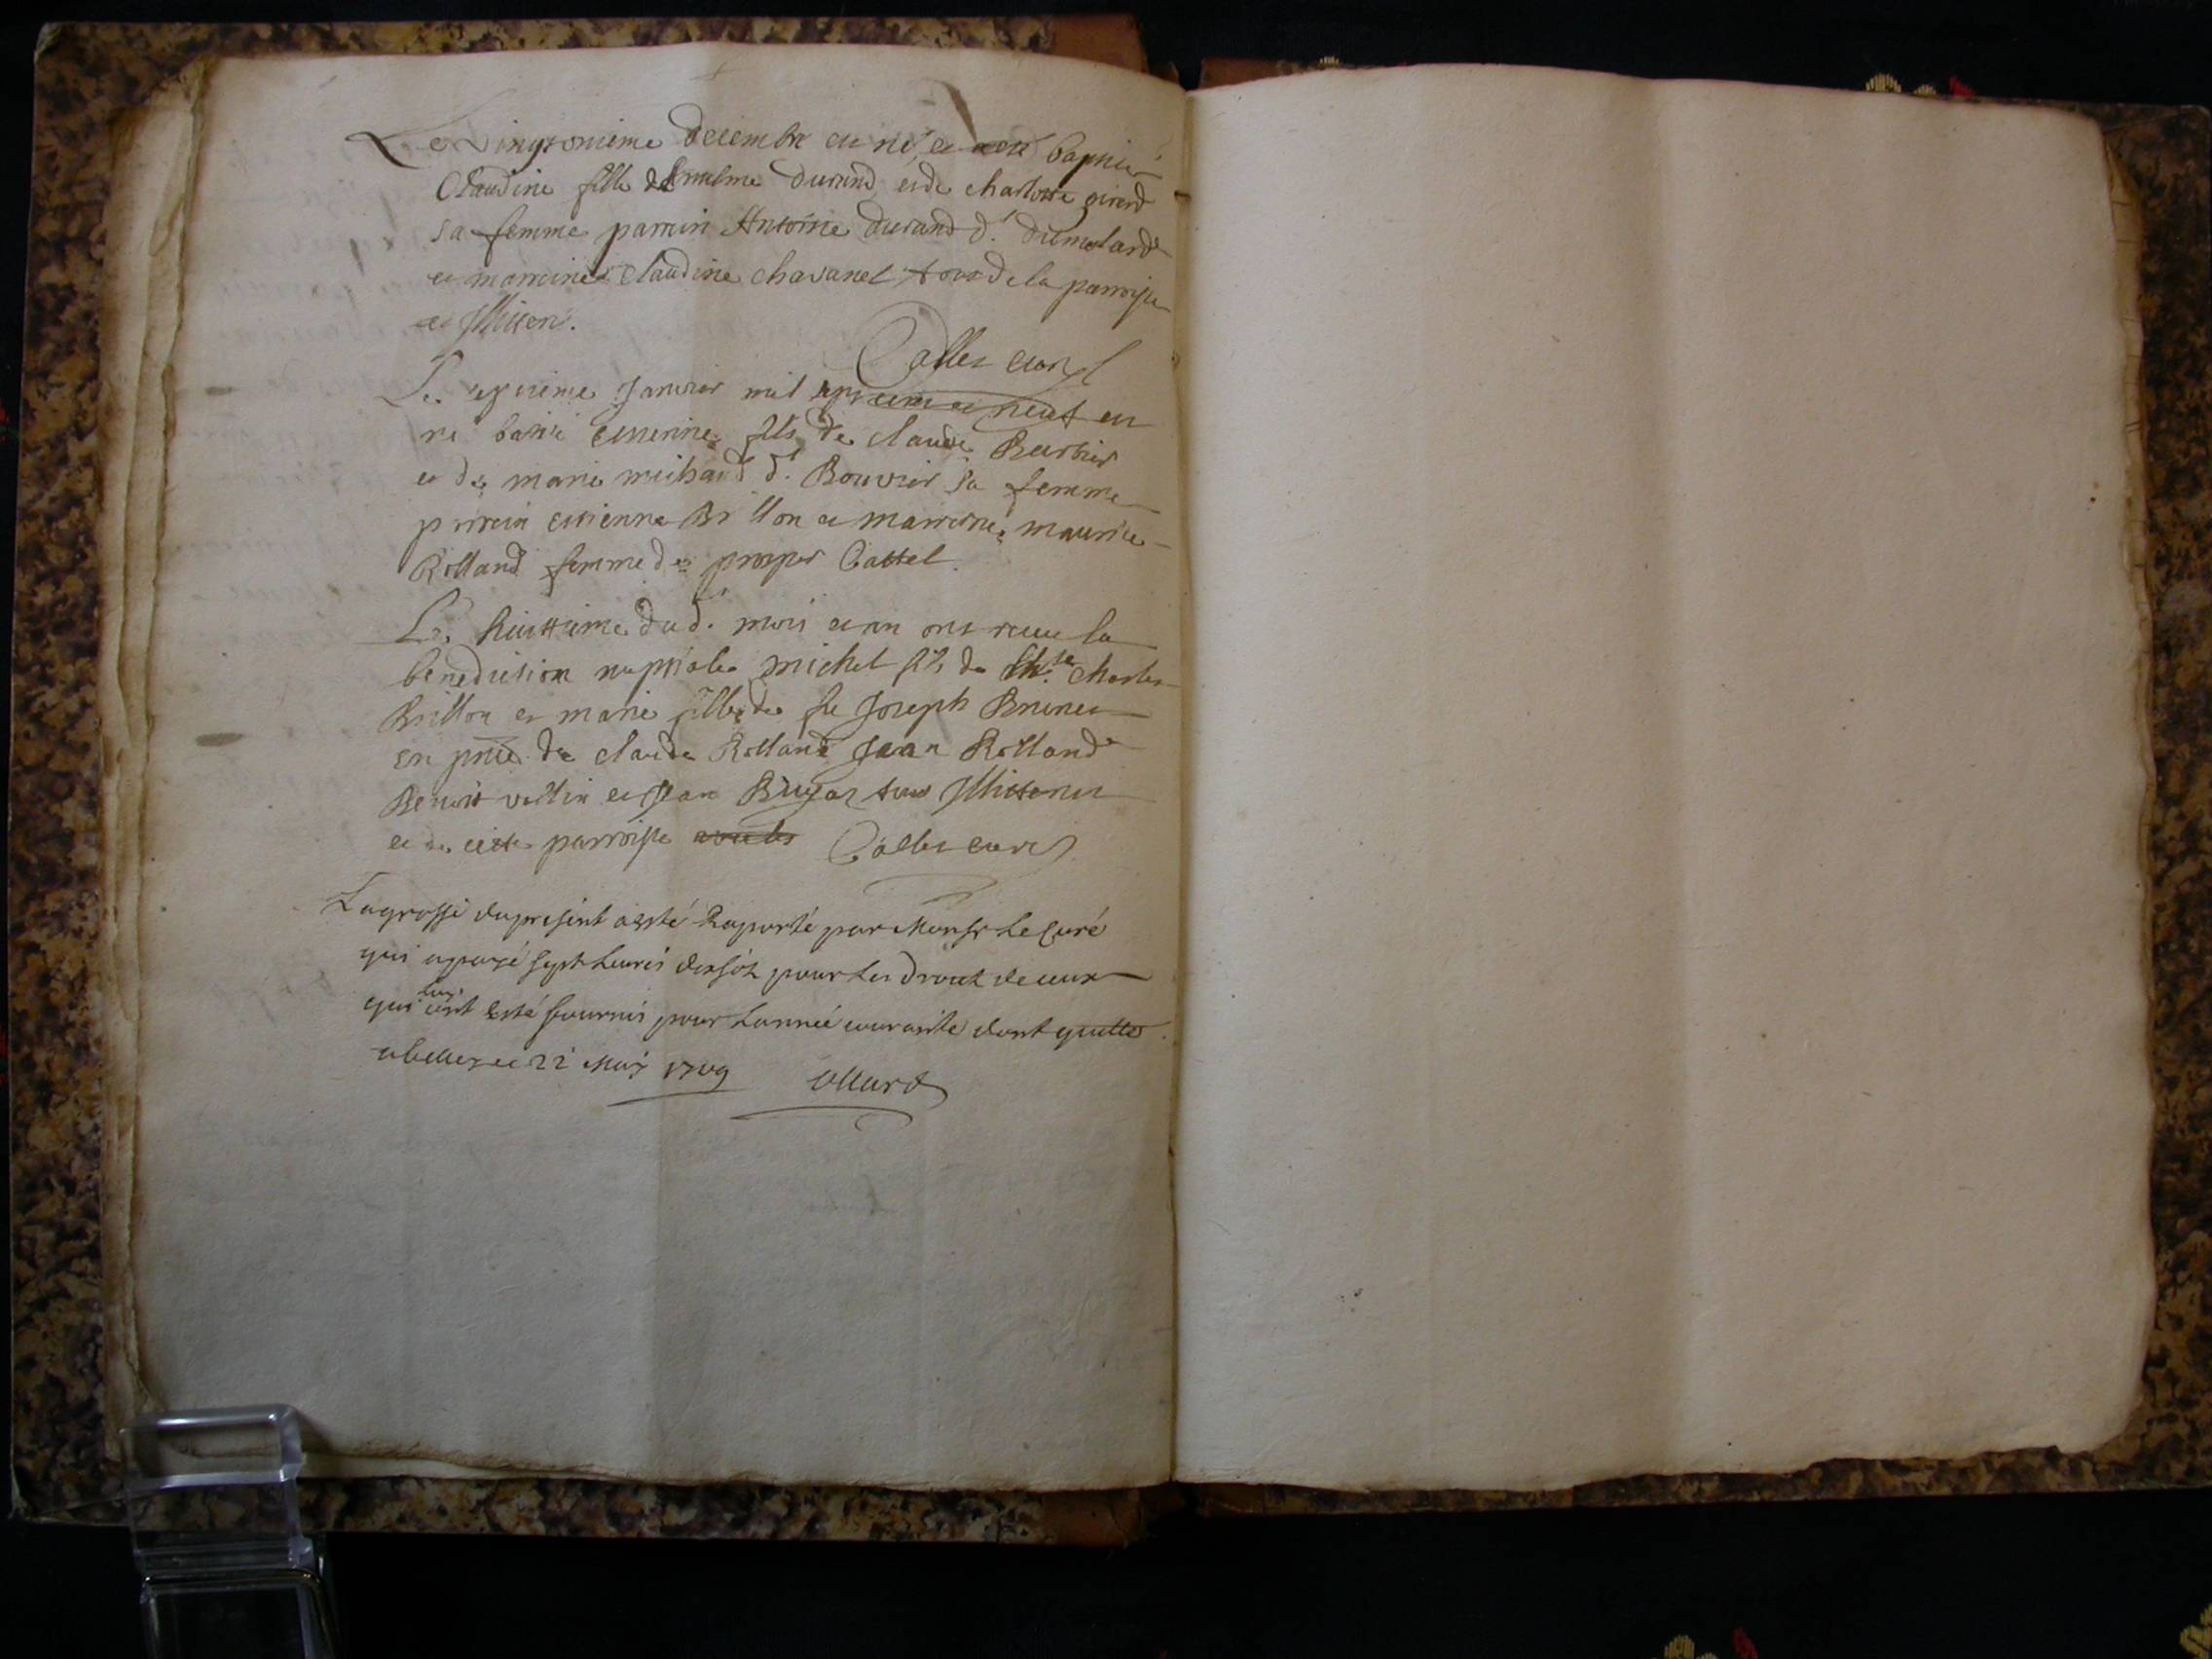 Le vingtonieme decembre est né, et a esté baptisée
Claudine fille de durand et de charlotte girerd
sa femme parrein Anthoine durand d. dumolard
et marreine claudine chavanel tous de la parroisse
et Illiterés.
Calles curé
Le septieme Janvier mil sept cens et neuf est
né batisé estienne fils de claude Barbier
et de marie michaud d. Bouvier sa femme
parrein estienne Brillon et marreine maurice
Rolland femme de prosper Cattel.
Le huittieme dud. mois et an ont receu la
benediction nuptiale michel fils de charles
Brillon et marie fille de fe Joseph Brunet
en pnce de claude Rolland Jean Rolland
Benoit vultin et Jean tous Illiterés
et de cette parroisse Calles curé
La grosse du present a esté Raporté par Monsr Le Curé
qui a payé sept Livres dix sols pour Les droits de ceux
qui luy ont esté fournis pour Lannée courante dont quitte
a belley ce 22 May 1709